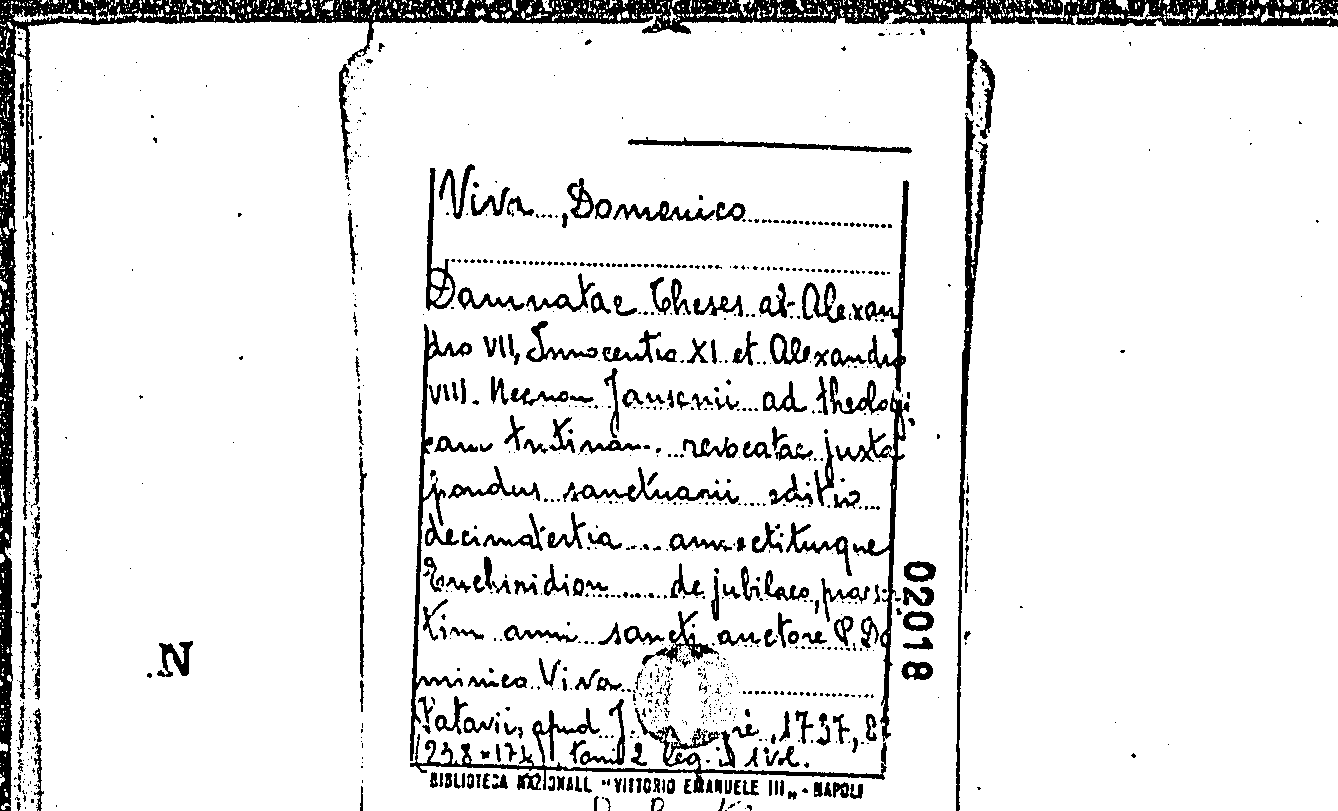 Viva, Domenico
Damnatae theses ab Alexan
dro VII, Innocentio XI et Alexandro
VIII. Necnon Jansenii ad theologi
cam trutinam revocatae juxta
pondus sanctuarii editio
decimatertia ... amectiturque
Enchiridion .... de jubilaeo, praeser
tim anni sancti auctore P. Do
minico Viva
Patavii, apud J. 1737, 8º
(23,8 × 17,4), tomi 2 leg. in 1 vol.
BIBLIOTECA NAZIONALE "VITTORIO EMANUELE III" - NAPOLI
02018
N.